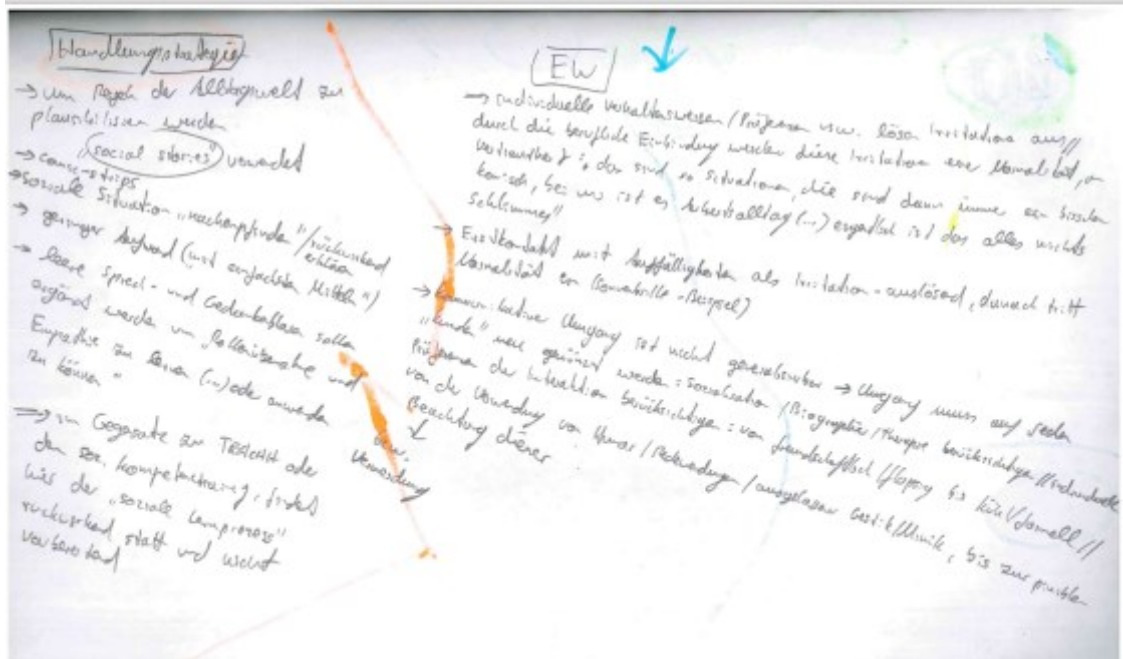 Handlungsstrategie
→ um Regeln der Alltagswelt zu
plausibilisieren werden
"social stories" verwendet
→ comic-strips
→ soziale Situation "nachempfinden"/rückwirkend
erklären
→ geringer Aufwand (mit einfachsten Mitteln")
→ leere Sprech- und Gedankenblasen sollen
ergänzt werden um "Rollenübernahme und
Empathie zu lernen (...) oder anwenden
zu können"
⇒ im Gegensatz zu TEACCH oder
dem soz. Kompetenztraining, findet
hier der "soziale Lernprozess"
rückwirkend statt und nicht
vorbereitend
EW
→ individuelle Verhaltensweisen / Präferenzen usw. lösen Irritation aus //
durch die berufliche Einbindung werden diese Irritation eine Normalität, en
"das sind so Situationen, die sind dann immer ein bisschen
komisch, bei uns ist es Arbeitsalltag (...) eigentlich ist das alles nichts
schlimmes"
→ Erstkontakt mit Auffälligkeiten als Irritation-auslösend, danach tritt
Normalität ein -Beispiel)
→ kommunikativer Umgang ist nicht generalisierbar → Umgang muss auf jeden
"Kunde" neu werden: Sozialisation / Biographie / Therapie berücksichtigen //
Präferenzen der Interaktion berücksichtigen: von freundschaftlich / bis kühl / formell //
von der Verwendung von Humor / / Gestik / Mimik, bis zur
Beachtung dieser
bzw. Vermeidung